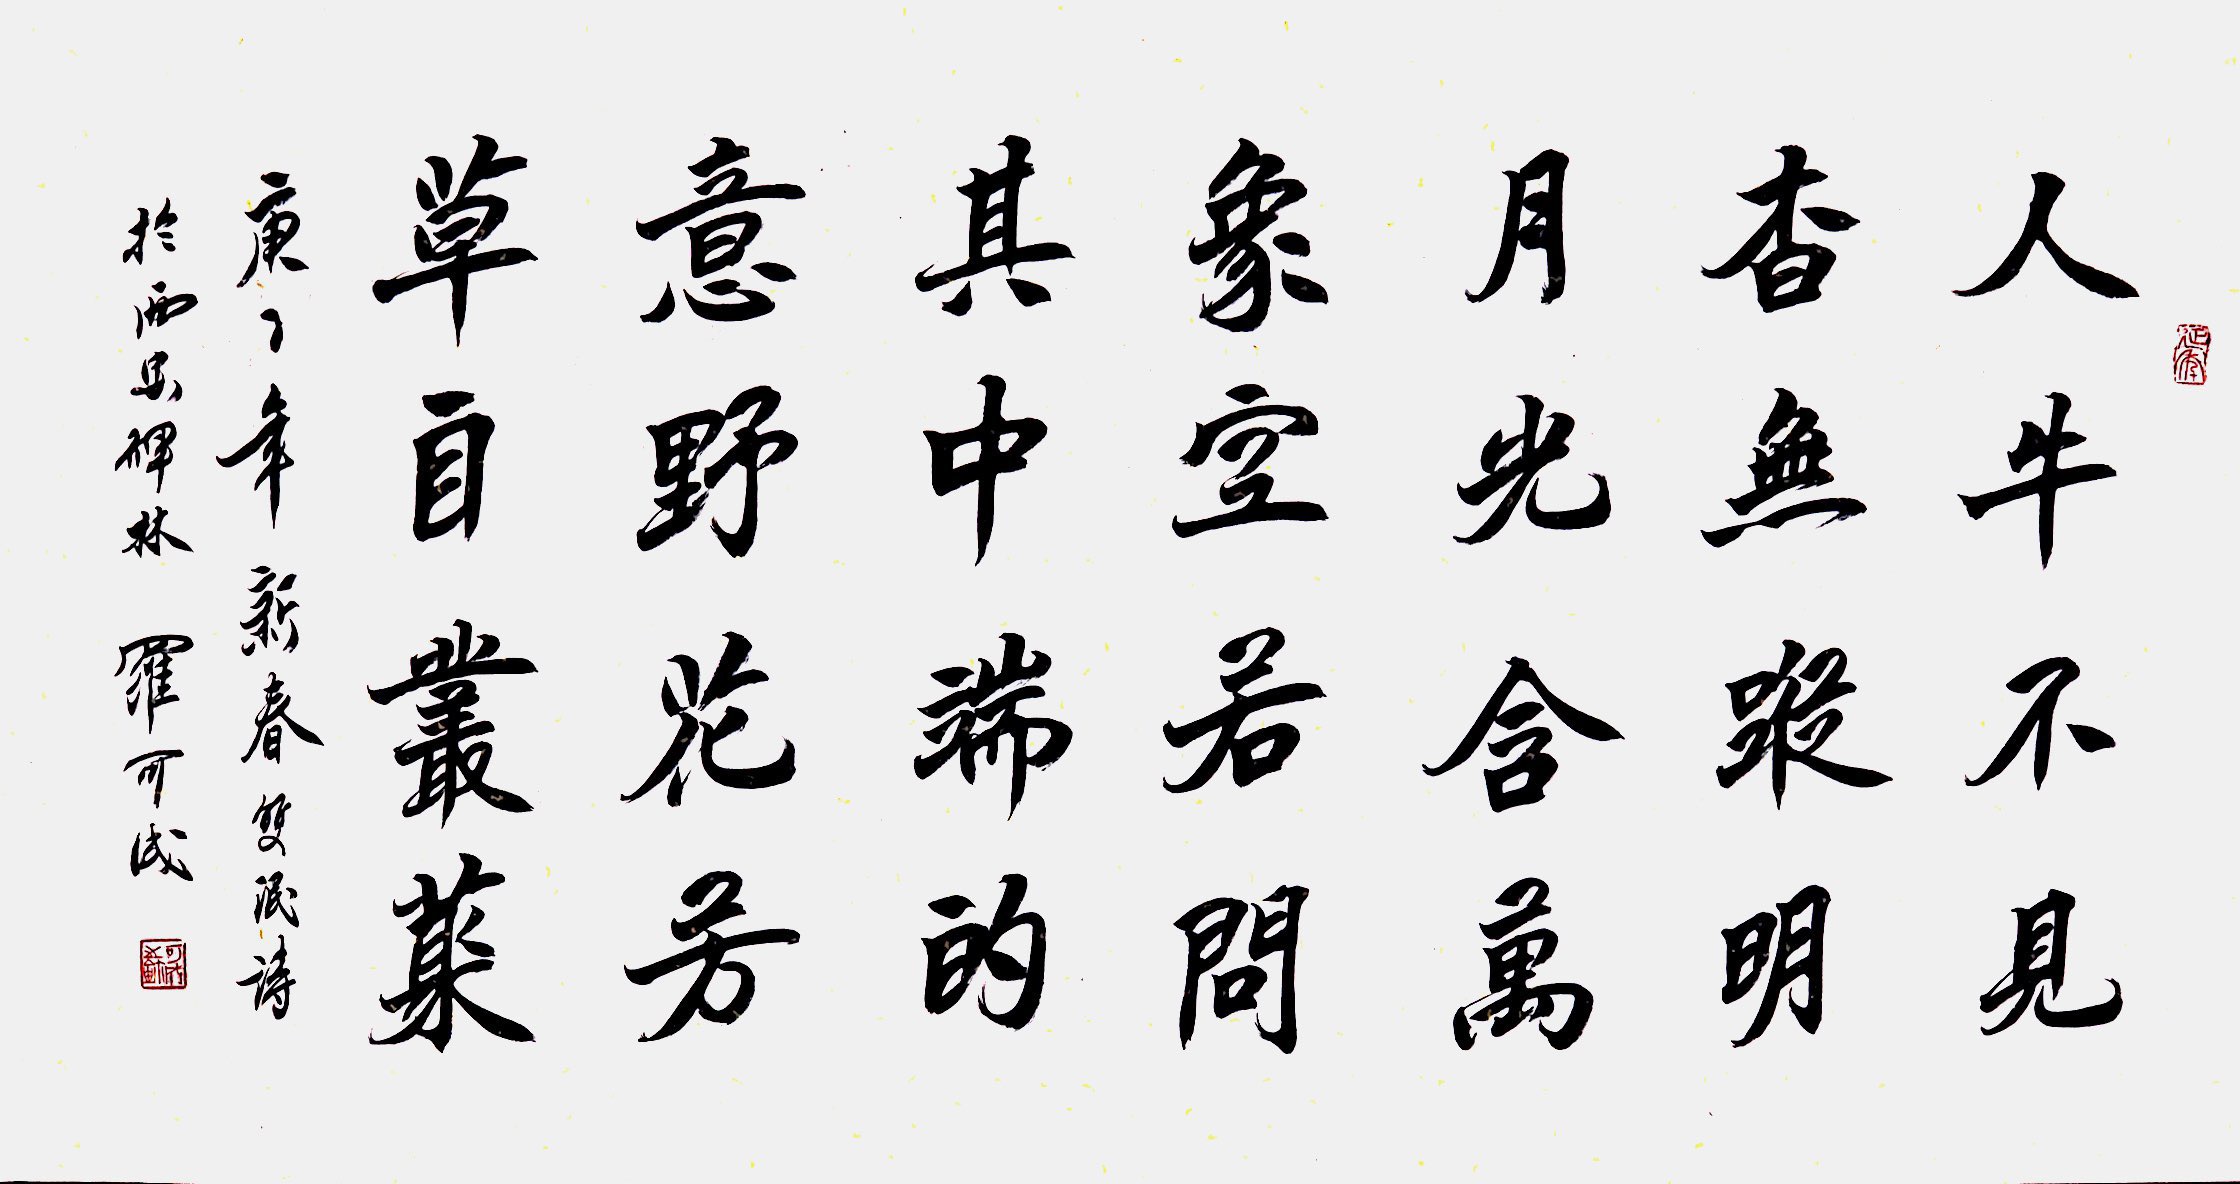 人牛不見
杳無蹤明
月光含萬
象空若問
其中端的
意野花芳
草自叢叢
庚子年新春雙泯詩
於西安碑林羅可成
延年